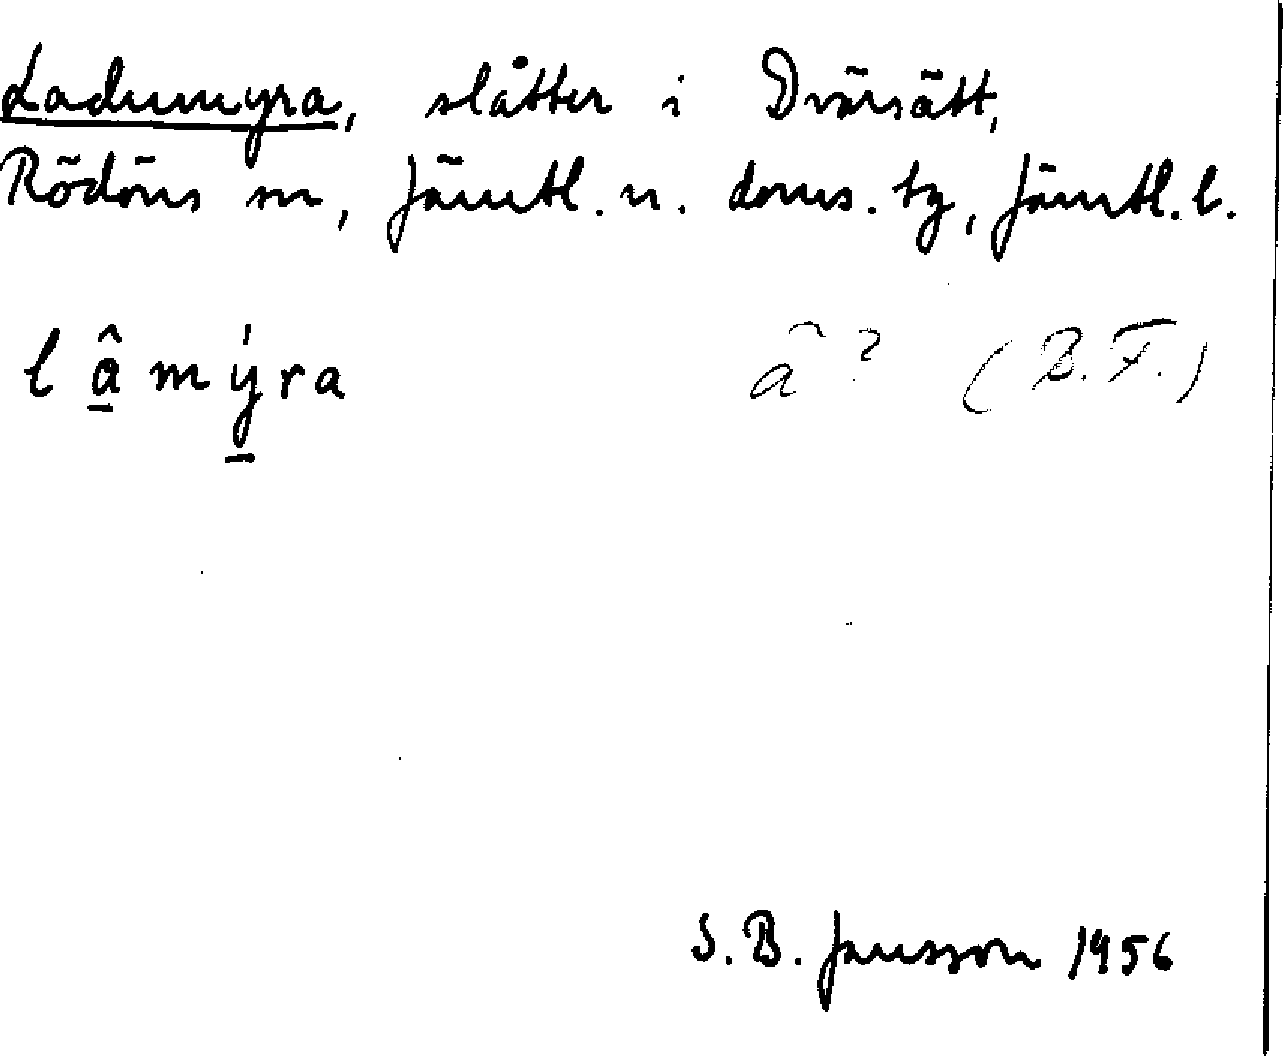 Ladumyra, slåtter i Dvärsätt,
Rödöns sn, Jämtl. n. doms. tg, Jämtl. l.
lâ̱mý̱ra â? (B.F.)
S.B. Jansson 1956